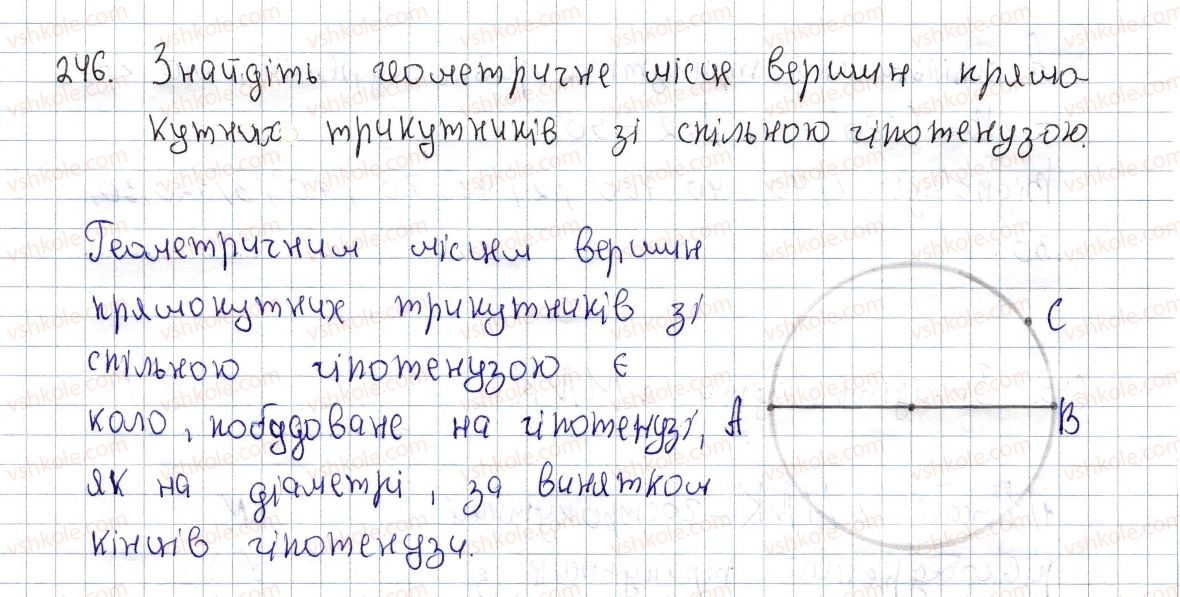 246. Знайдіть геометричне місце вершин прямо
кутних трикутників зі спільною гіпотенузою.
Геометричним місцем вершин
прямокутних трикутників зі
спільною гіпотенузою є
коло, побудоване на гіпотенузі,
як на діаметрі, за винятком
кінців гіпотенузи.
C
A
B
vshkole.com